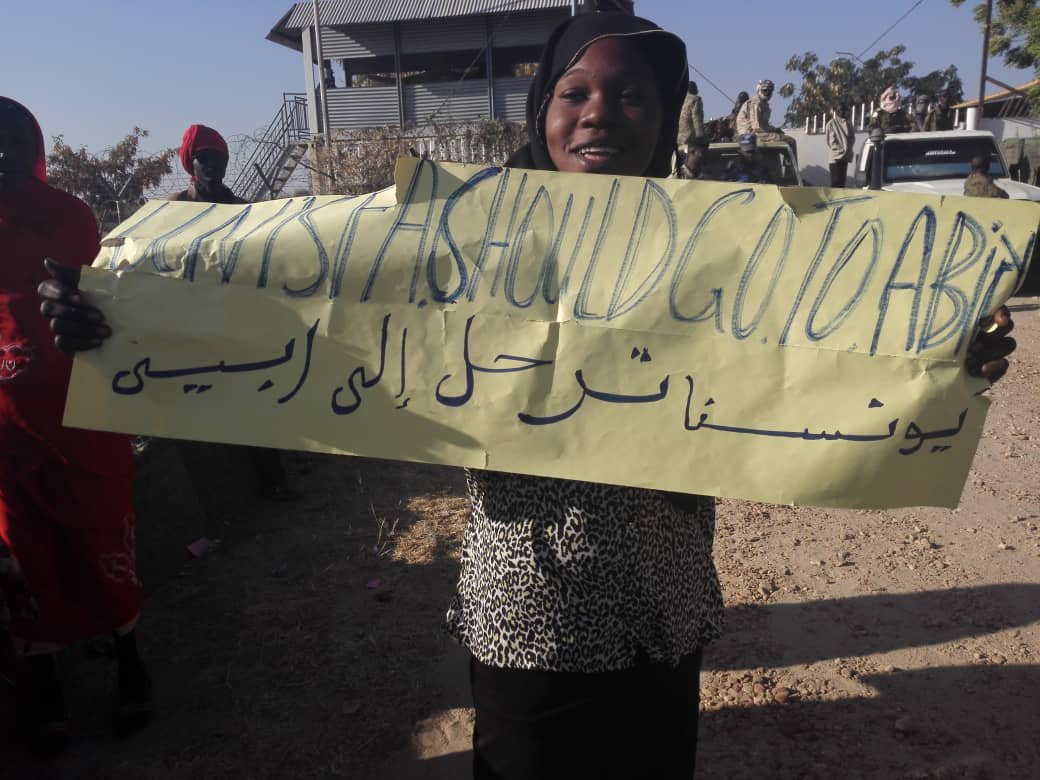 UNISFA.SHOULD GO.TO.ABiY
يونسفا ترحل إلى ابيسي